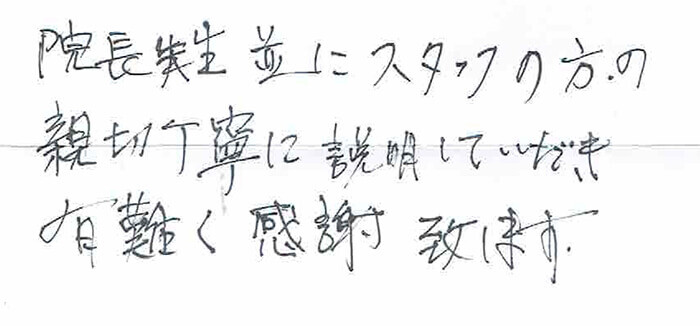 院長先生並にスタッフの方の
親切丁寧に説明していただき
有難く感謝致します.